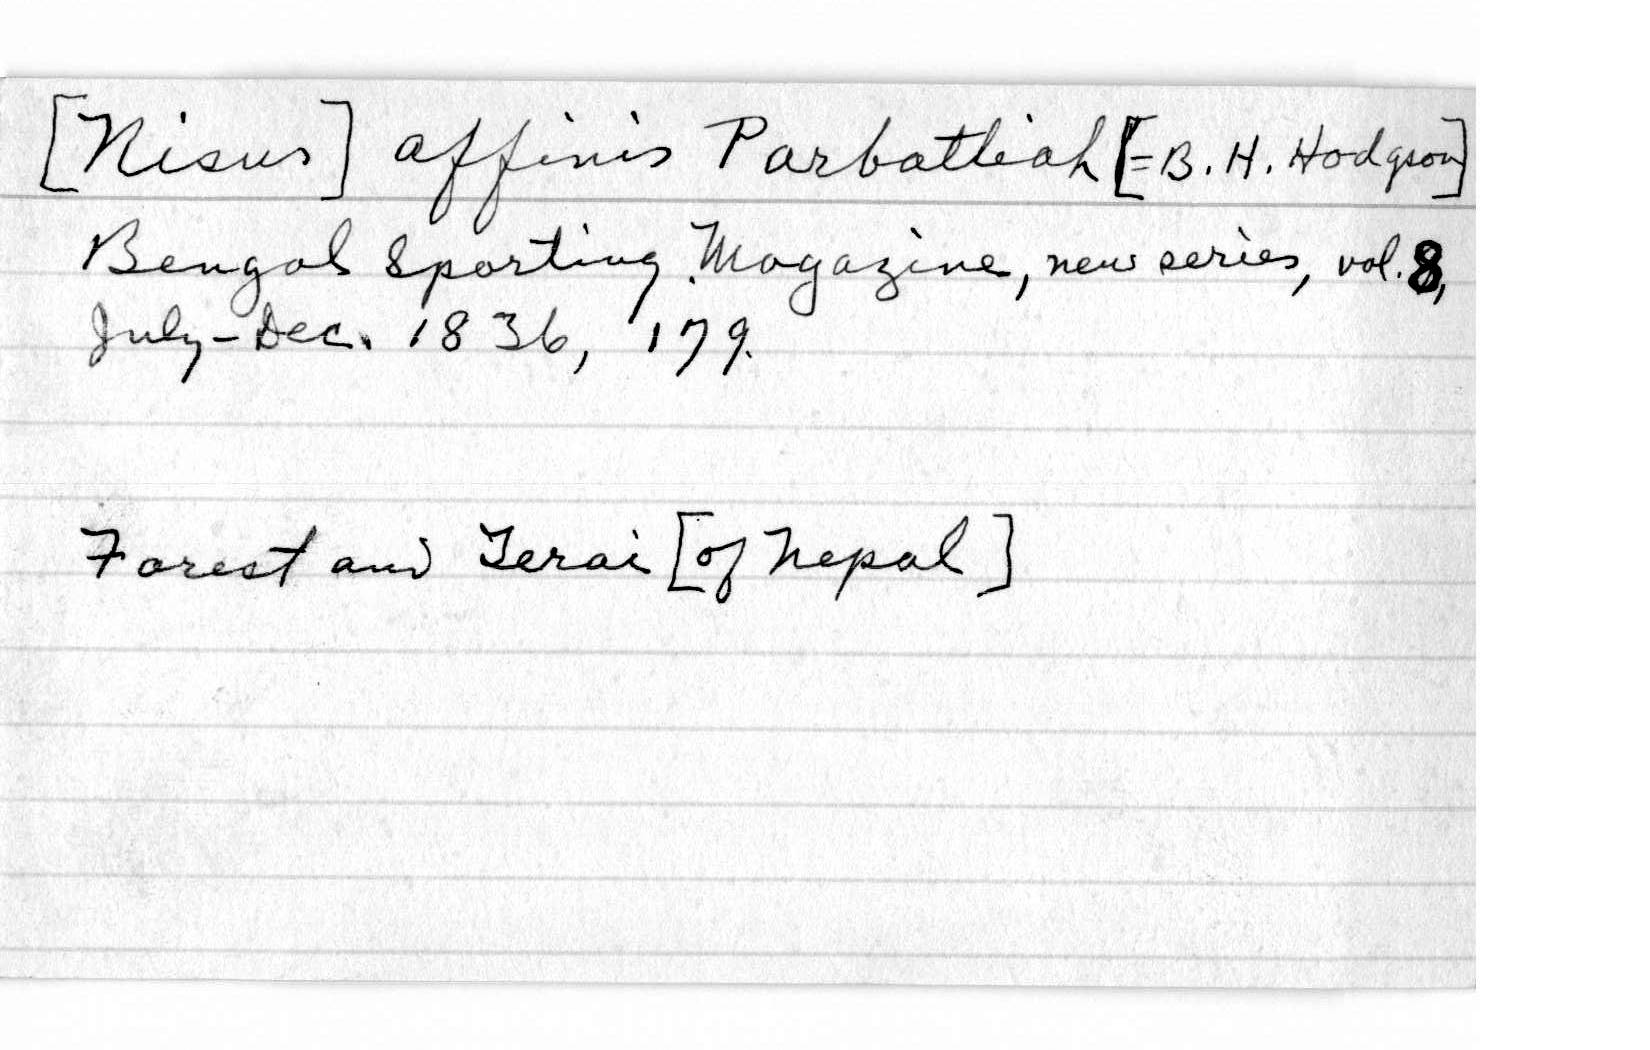 [Nisus] affinis Parbattiah [=B. H. Hodgson]
Bengal Sporting Magazine, new series, vol. 8,
July-Dec. 1836, 179.
Forest and Terai [of Nepal]